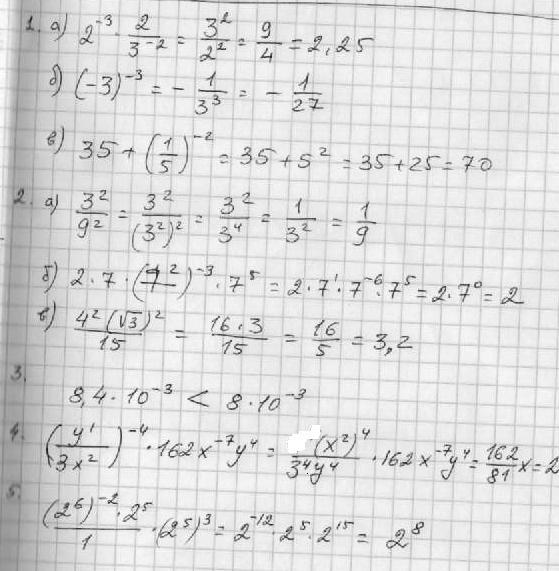 1. а) 2^{-3} · \frac{2}{3^{-2}} = \frac{3^2}{2^2} = \frac{9}{4} = 2,25
б) (-3)^{-3} = -\frac{1}{3^3} = -\frac{1}{27}
в) 35 + (\frac{1}{5})^{-2} = 35 + 5^2 = 35 + 25 = 70
2. а) \frac{3^2}{9^2} = \frac{3^2}{(3^2)^2} = \frac{3^2}{3^4} = \frac{1}{3^2} = \frac{1}{9}
б) 2 · 7 · (7^2)^{-3} · 7^5 = 2 · 7^1 · 7^{-6} · 7^5 = 2 · 7^0 = 2
в) \frac{4^2 (\sqrt{3})^2}{15} = \frac{16 · 3}{15} = \frac{16}{5} = 3,2
3.
8,4 · 10^{-3} < 8 · 10^{-3}
4. (\frac{y^1}{3x^2})^{-4} · 162x^{-7}y^4 = \frac{(x^2)^4}{3^4 · y^4} · 162x^{-7}y^4 = \frac{162}{81}x = 2
5.
\frac{(2^6)^{-2} · 2^5}{1} · (2^5)^3 = 2^{-12} · 2^5 · 2^{15} = 2^8